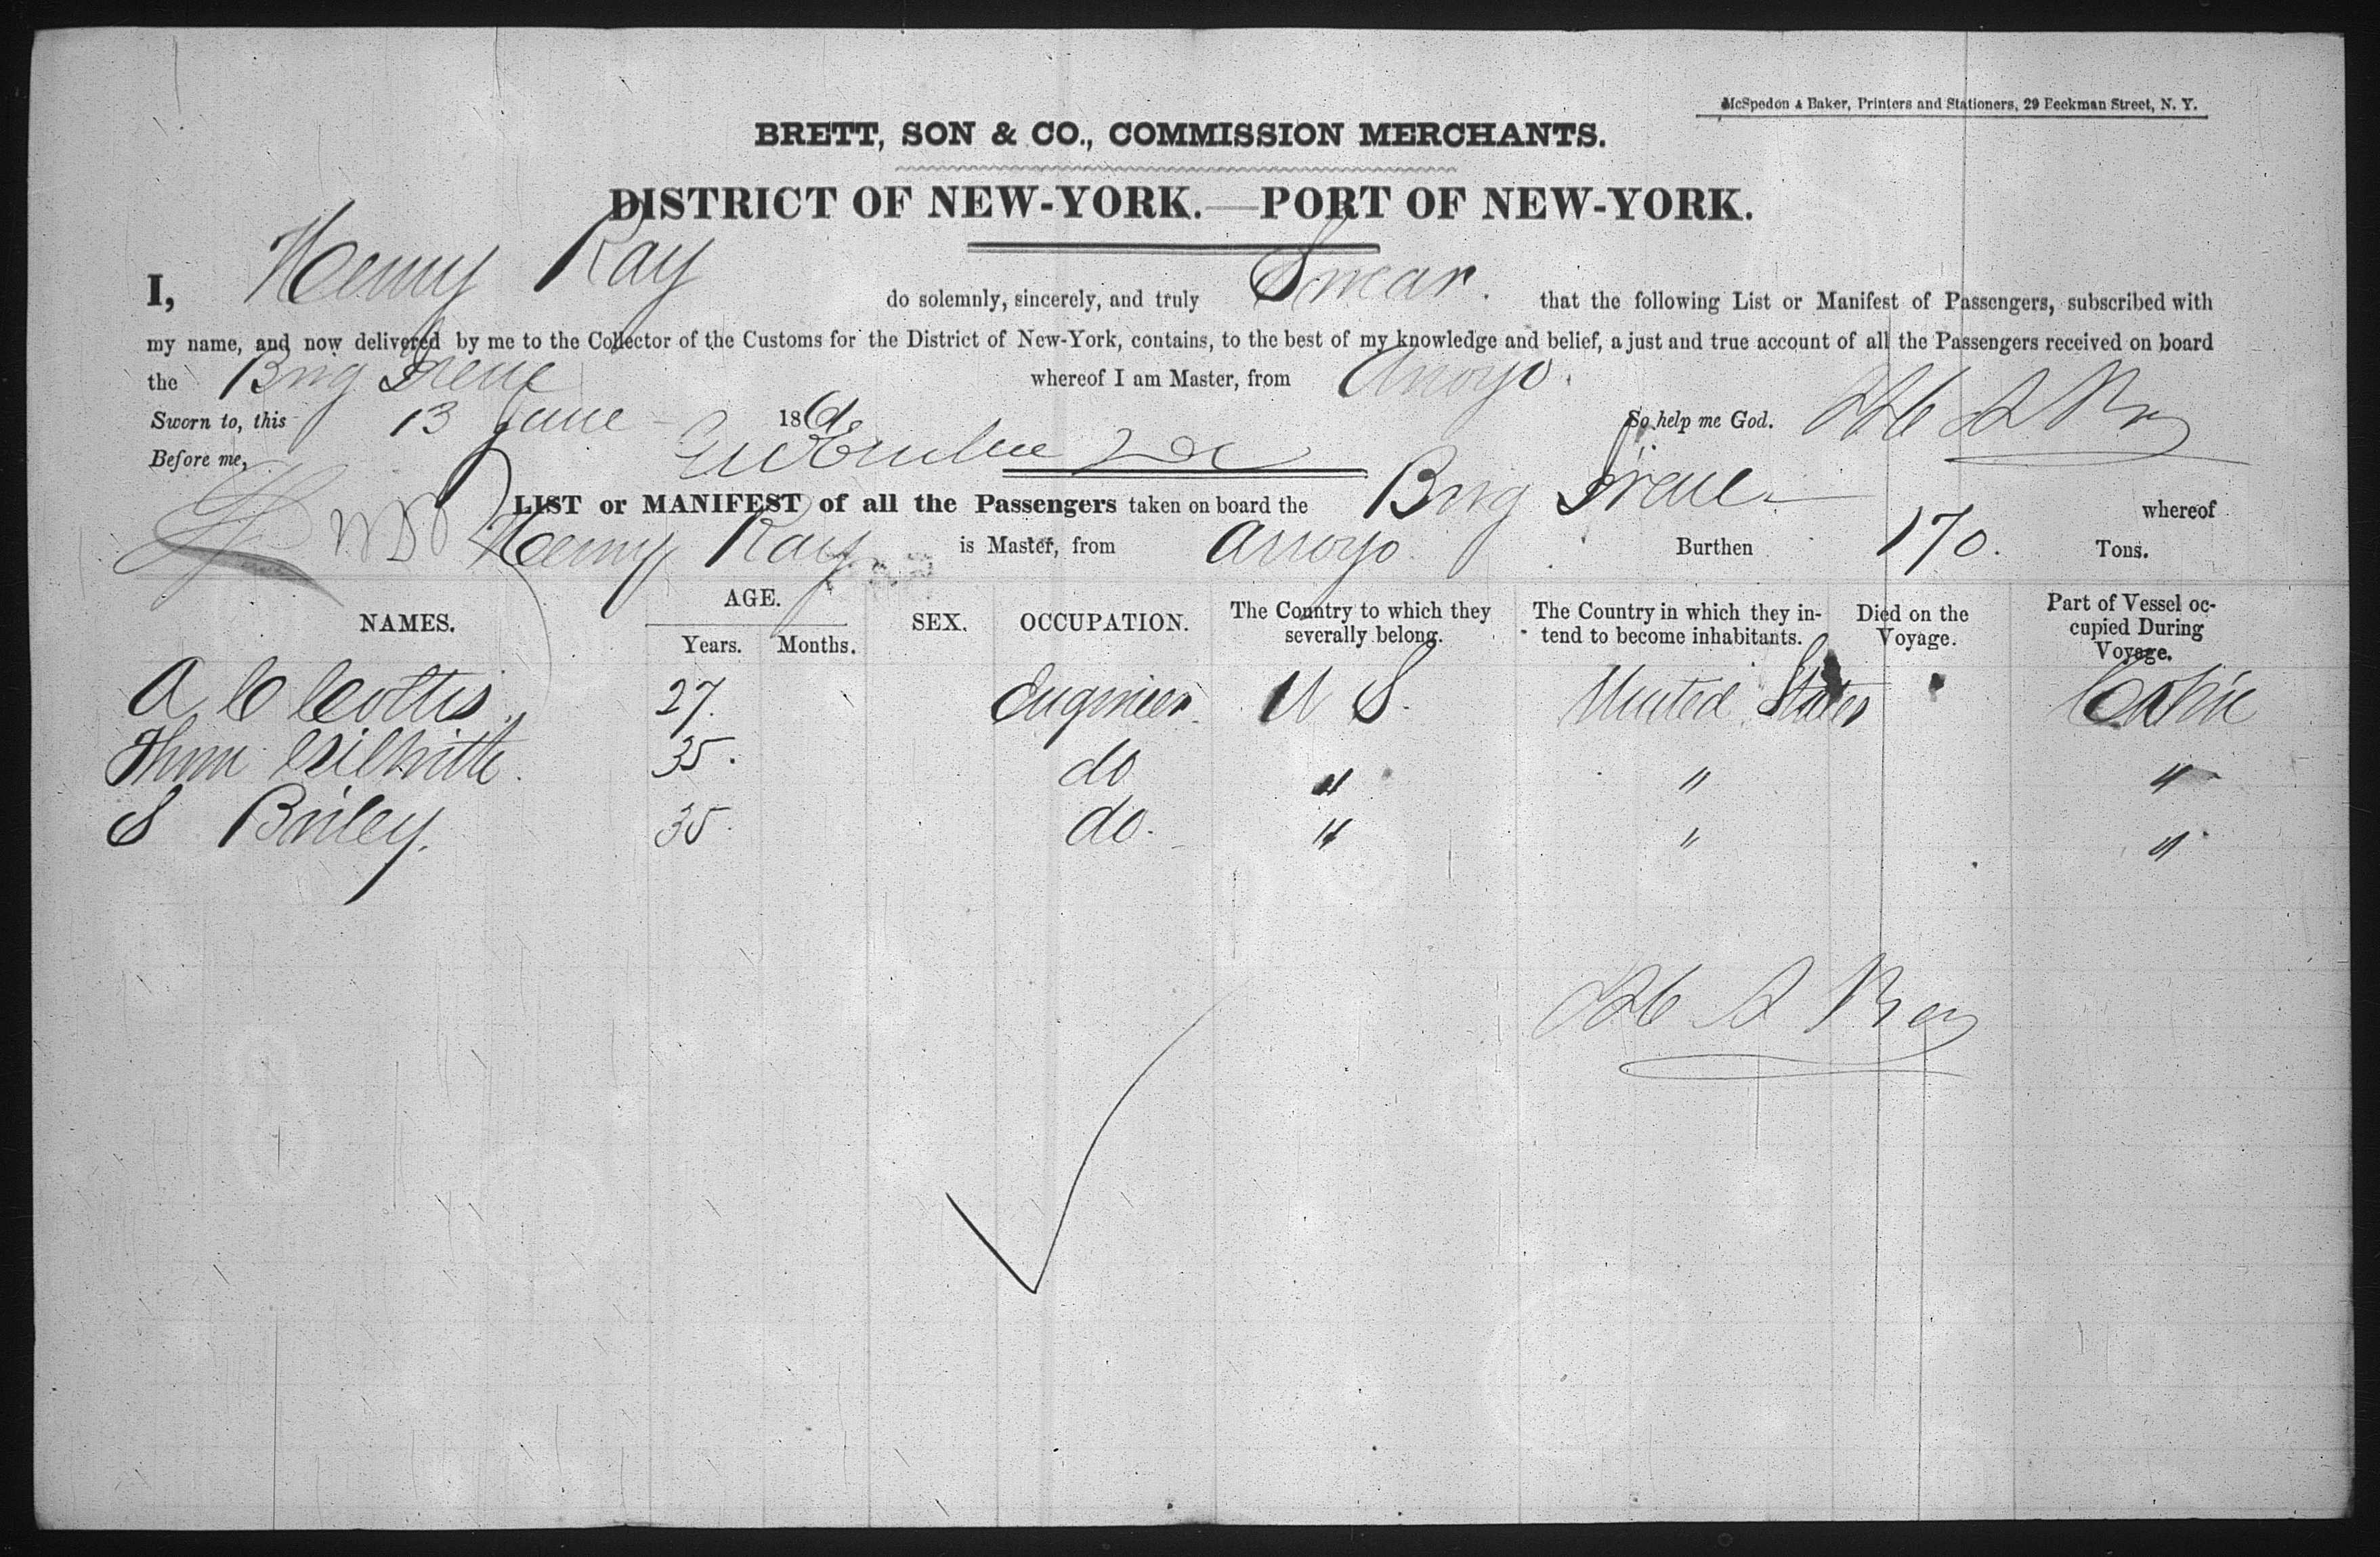 McSpedon & Baker, Printers and Stationers, 29 Beekman Street, N. Y.
BRETT, SON & CO., COMMISSION MERCHANTS.
DISTRICT OF NEW-YORK.—PORT OF NEW-YORK.
I, Henry Ray do solemnly, sincerely, and truly Swear. that the following List or Manifest of Passengers, subscribed with
my name, and now delivered by me to the Collector of the Customs for the District of New-York, contains, to the best of my knowledge and belief, a just and true account of all the Passengers received on board
the Brig Irene whereof I am Master, from Arroyo.
Sworn to, this 13 June 186 So help me God. Ray
Before me,
LIST or MANIFEST of all the Passengers taken on board the Brig Irene whereof
Henry Ray is Master, from Arroyo Burthen 170. Tons.
NAMES. AGE. Years. Months. SEX. OCCUPATION. The Country to which they severally belong. The Country in which they intend to become inhabitants. Died on the Voyage. Part of Vessel occupied During Voyage.
A C Cottis. 27. Engineer. U S. United States Cabin
35. do " " "
S Briley. 35. do. " " "
Ray